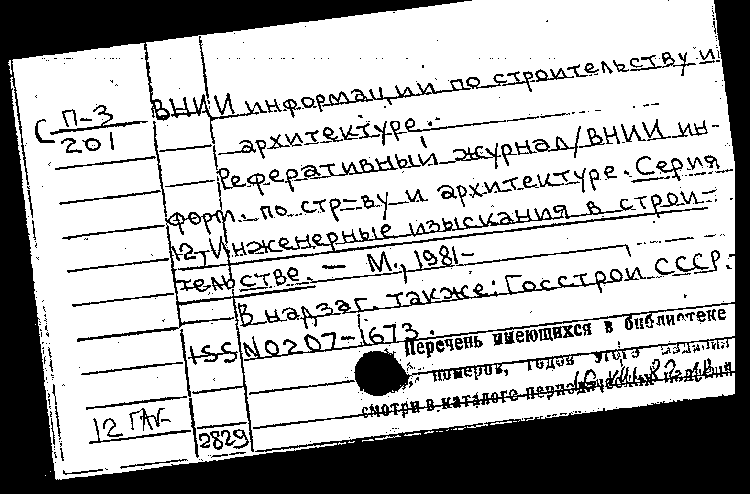 П-3
201
ВНИИ информации по строительству и
архитектуре.
Реферативный журнал/ВНИИ ин-
форм. по стр-ву и архитектуре. Серия
12, Инженерные изыскания в строи-
тельстве. — М., 1981-
В надзаг. также: Госстрой СССР.
ISSN 0207-1673.
Перечень имеющихся в библиотеке
номеров, годов этого издания
смотри в каталоге периодических изданий
12
2829